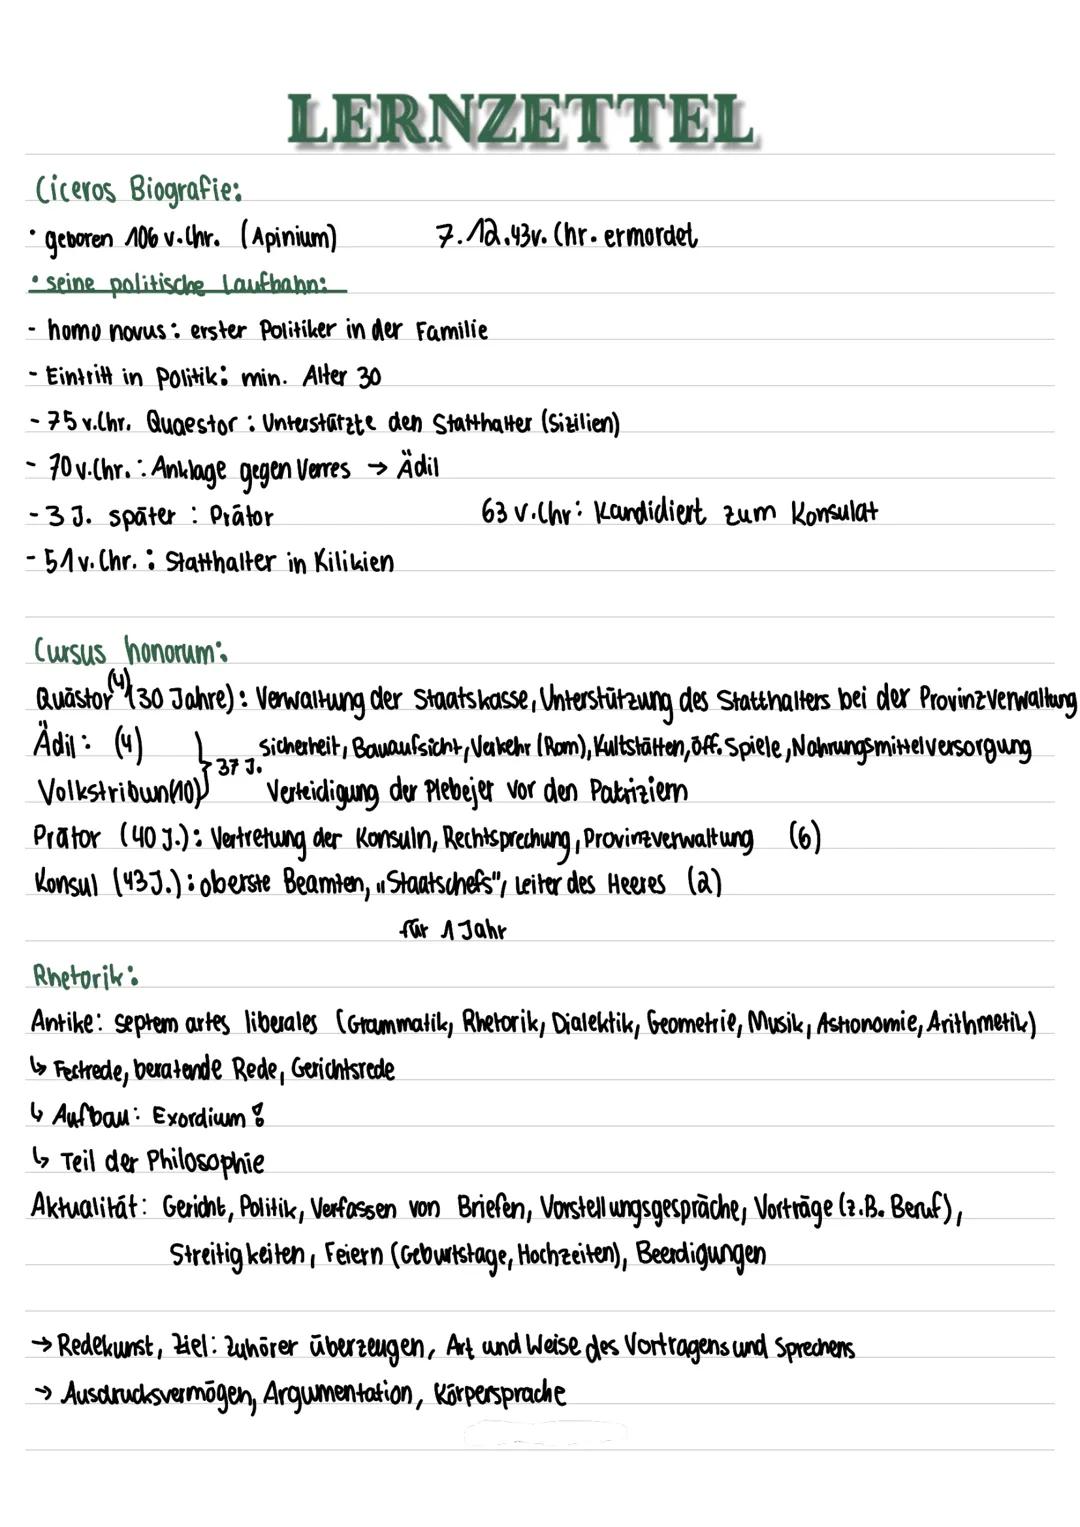 LERNZETTEL
Ciceros Biografie:
• geboren 106 v.Chr. (Apinium) 7.12.43v. Chr. ermordet
• seine politische Laufbahn:
- homo novus: erster Politiker in der Familie
- Eintritt in Politik: min. Alter 30
- 75 v.Chr. Quaestor: Unterstützte den Statthalter (Sizilien)
- 70 v.Chr.: Anklage gegen Verres → Ädil
- 3 J. später: Prätor 63 v.Chr: Kandidiert zum Konsulat
- 51 v. Chr.: Statthalter in Kilikien
Cursus honorum:
Quästor (4) (30 Jahre): Verwaltung der Staatskasse, Unterstützung des Statthalters bei der Provinzverwaltung
Ädil: (4) } 37 J. Sicherheit, Bauaufsicht, Verkehr (Rom), Kultstätten, öff. Spiele, Nahrungsmittelversorgung
Volkstribun (10) Verteidigung der Plebejer vor den Patriziern
Prätor (40 J.): Vertretung der Konsuln, Rechtsprechung, Provinzverwaltung (6)
Konsul (43 J.): oberste Beamten, „Staatschefs", Leiter des Heeres (2)
für 1 Jahr
Rhetorik:
Antike: septem artes liberales (Grammatik, Rhetorik, Dialektik, Geometrie, Musik, Astronomie, Arithmetik)
↳ Festrede, beratende Rede, Gerichtsrede
↳ Aufbau: Exordium !
↳ Teil der Philosophie
Aktualität: Gericht, Politik, Verfassen von Briefen, Vorstellungsgespräche, Vorträge (z.B. Beruf),
Streitigkeiten, Feiern (Geburtstage, Hochzeiten), Beerdigungen
→ Redekunst, Ziel: Zuhörer überzeugen, Art und Weise des Vortragens und Sprechens
→ Ausdrucksvermögen, Argumentation, Körpersprache